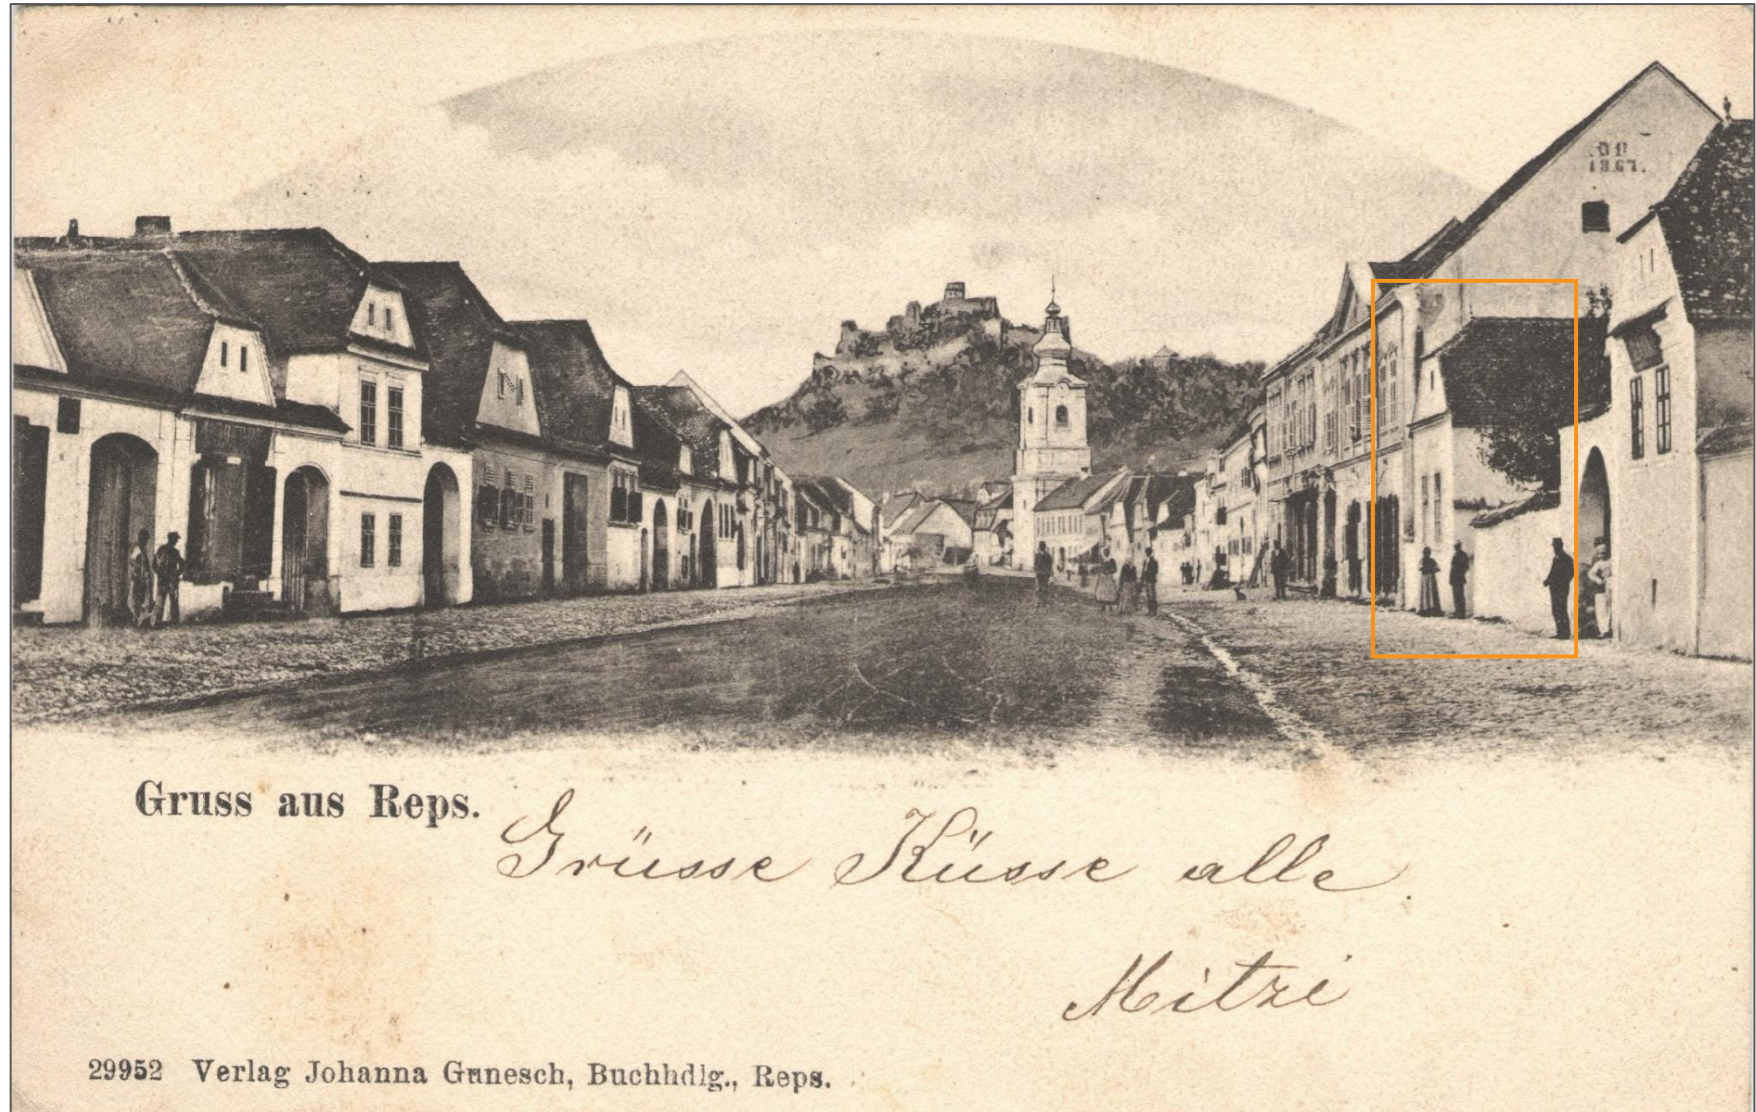 1867.
Gruss aus Reps.
Grüsse Küsse alle
Mitzi
29952 Verlag Johanna Gunesch, Buchhdlg., Reps.